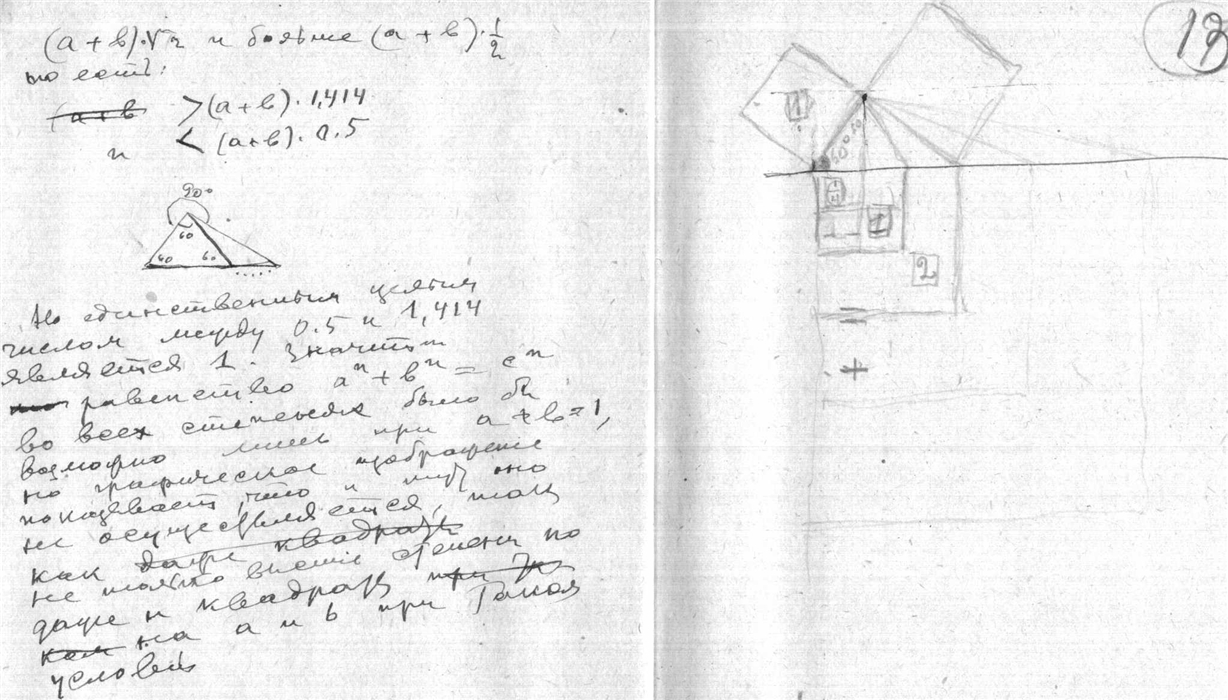 (а + в)·√2 и больше (а + в)·1/2
то есть:
(а+в > (а+в)·1,414
и < (а+в)·0.5
90°
60
60 60
Но единственным целым
числом между 0.5 и 1,414
является 1. Значит
равенство aⁿ + bⁿ = cⁿ
во всех степенях было бы
возможно лишь при а + в = 1,
но графическое изображение
показывает, что и оно
не осуществляется, так
как даже квадрат
не только выше степени но
даже и квадрат при
как на а и b при такой
условии
19
1
60°
1
1
2
=
+